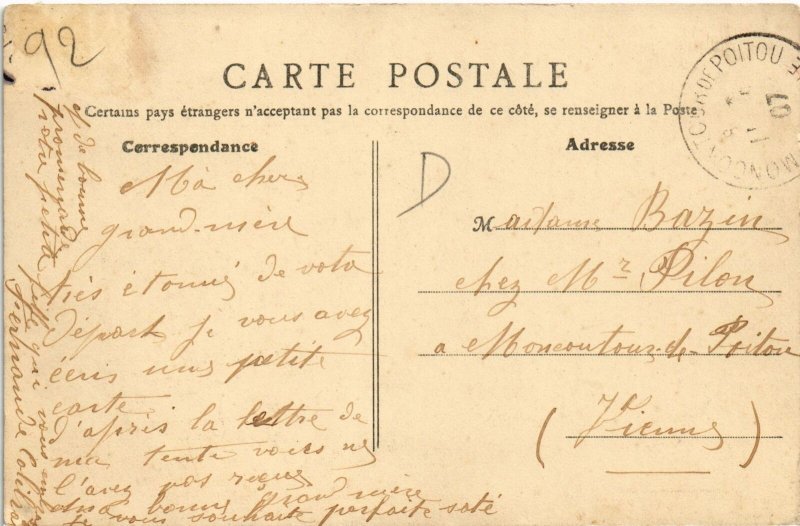 92
CARTE POSTALE
Certains pays étrangers n'acceptent pas la correspondance de ce côté, se renseigner à la Poste
Correspondance
Ma chere
grand-mère
très étonné de votre
départ je vous avez
écris une petite
carte
d'après la lettre de
ma tente vous ne
l'avez pas reçue
ma bonne grand mère
je vous souhaite parfaite saté
et de bonne
promenade
votre petite fille qui vous
Fernande
D
Adresse
Madame Bazin
chez Mr Pilon
a Moncoutour-de-Poitou
(Vienne)
MONCONTOUR DE POITOU
11
07